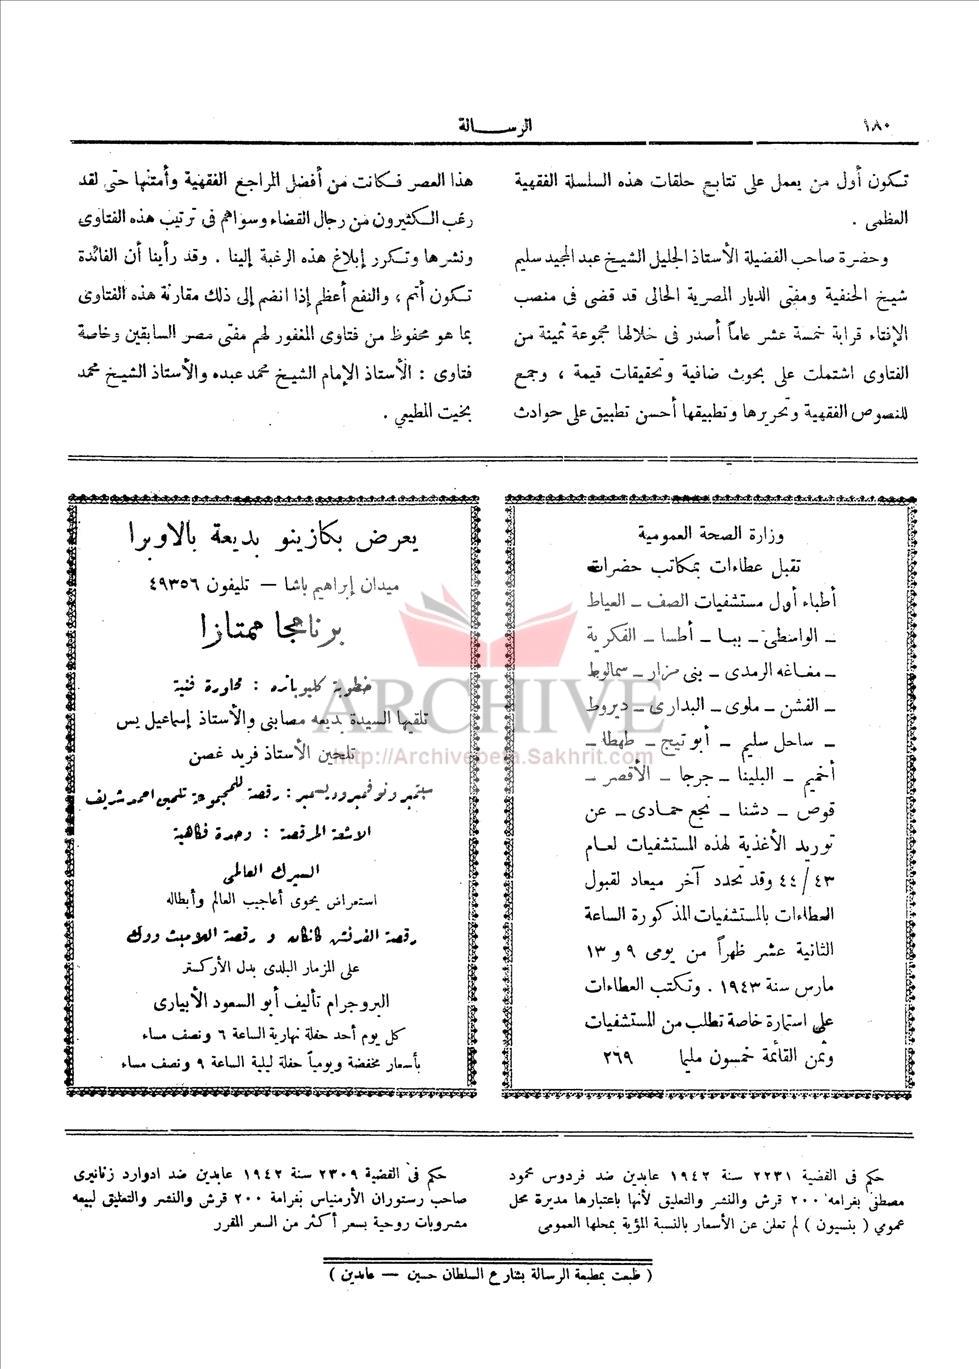 ١٨٠
الرسالة
تكون أول من يعمل على تتابع حلقات هذه السلسلة الفقهية
العظمى .
وحضرة صاحب الفضيلة الأستاذ الجليل الشيخ عبد المجيد سليم
شيخ الحنفية ومفتى الديار المصرية الحالى قد قضى فى منصب
الإفتاء قرابة خمسة عشر عاماً أصدر فى خلالها مجموعة ثمينة من
الفتاوى اشتملت على بحوث ضافية وتحقيقات قيمة ، وجمع
للنصوص الفقهية وتحريرها وتطبيقها أحسن تطبيق على حوادث
هذا العصر فكانت من أفضل المراجع الفقهية وأمتنها حتى لقد
رغب الكثيرون من رجال القضاء وسواهم فى ترتيب هذه الفتاوى
ونشرها وتكرر إبلاغ هذه الرغبة إلينا . وقد رأينا أن الفائدة
تكون أتم ، والنفع أعظم إذا انضم إلى ذلك مقارنة هذه الفتاوى
بما هو محفوظ من فتاوى المغفور لهم مفتى مصر السابقين وخاصة
فتاوى : الأستاذ الإمام الشيخ محمد عبده والأستاذ الشيخ محمد
بخيت المطيعي .
وزارة الصحة العمومية
تقبل عطاءات بمكاتب حضرات
أطباء أول مستشفيات الصف ـ العياط
ـ الواسطى ـ ببا ـ أطسا ـ الفكرية
ـ مغاغه الرمدى ـ بنى مزار ـ سمالوط
ـ الفشن ـ ملوى ـ البدارى ـ ديروط
ـ ساحل سليم ـ أبو تيج ـ طهطا ـ
أخميم ـ البلينا ـ جرجا ـ الأقصر ـ
قوص ـ دشنا ـ نجع حمادى ـ عن
توريد الأغذية لهذه المستشفيات لعام
٤٤/٤٣ وقد تحدد آخر ميعاد لقبول
العطاءات بالمستشفيات المذكورة الساعة
الثانية عشر ظهراً من يومى ٩ و ١٣
مارس سنة ١٩٤٣ . وتكتب العطاءات
على استمارة خاصة تطلب من المستشفيات
وثمن القائمة خمسون مليما ٢٦٩
يعرض بكازينو بديعة بالاوبرا
ميدان إبراهيم باشا — تليفون ٤٩٣٥٦
برنامجا ممتازا
خطوبة كليوباتره : محاورة فنية
تلقيها السيدة بديعه مصابنى والأستاذ إسماعيل يس
تلحين الأستاذ فريد غصن
سبتمبر ونوفمبر وديسمبر : رقصة للمجموعة تلحين احمد شريف
الاشعة المرقصة : وحدة فكاهية
السيرك العالمى
استعراض يحوى أعاجيب العالم وأبطاله
رقصة الفرنش كانكان و رقصة اللامبث ووك
على المزمار البلدى بدل الأركستر
البروجرام تأليف أبو السعود الأبيارى
كل يوم أحد حفلة نهارية الساعة ٦ ونصف مساء
بأسعار مخفضة ويومياً حفلة ليلية الساعة ٩ ونصف مساء
ARCHIVE
http://Archivebeta.Sakhrit.com
حكم فى القضية ٢٢٣١ سنة ١٩٤٢ عابدين ضد فردوس محمود
مصطفى بغرامه ٢٠٠ قرش والنشر والتعليق لأنها باعتبارها مديرة محل
عمومي ( بنسيون ) لم تعلن عن الأسعار بالنسبة المؤية بمحلها العمومى
حكم فى القضية ٢٣٠٩ سنة ١٩٤٢ عابدين ضد ادوارد زنانيرى
صاحب رستوران الأرمنياس بغرامة ٢٠٠ قرش والنشر والتعليق لبيعه
مشروبات روحية بسعر أكثر من السعر المقرر
( طبعت بمطبعة الرسالة بشارع السلطان حسين — عابدين )